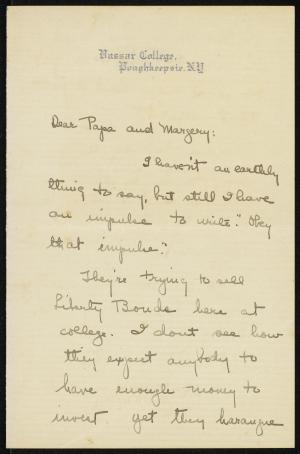 Vassar College,
Poughkeepsie, N.Y.
Dear Papa and Margery:
I haven't an earthly
thing to say, but still I have
an impulse to write. "Obey
that impulse."
They're trying to sell
Liberty Bonds here at
college. I dont see how
they expect anybody to
have enough money to
invest yet they harangue